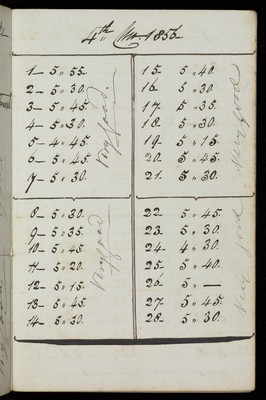 4th Mo. 1856
1 - 5 " 55.
2 - 5 " 30.
3 - 5 " 45.
4 - 5 " 30.
5 - 4 " 45.
6 - 5 " 45
7 - 5 " 30.
Very good.
8 - 5 " 30.
9 - 5 " 35.
10 - 5 " 45
11 - 5 " 20.
12 - 5 " 15.
13 - 5 " 45.
14 - 5 " 30.
Very good
15 - 5 " 40.
16 5 " 30.
17 5 " 35.
18 5 " 30.
19 5 " 15.
20. 5 " 45.
21. 5 " 30.
Very good
22 - 5 " 45.
23. 5 " 30.
24 - 4 " 30.
25 - 5 " 40.
26 5 " —
27 - 5 " 45.
28 - 5 " 30.
Very good